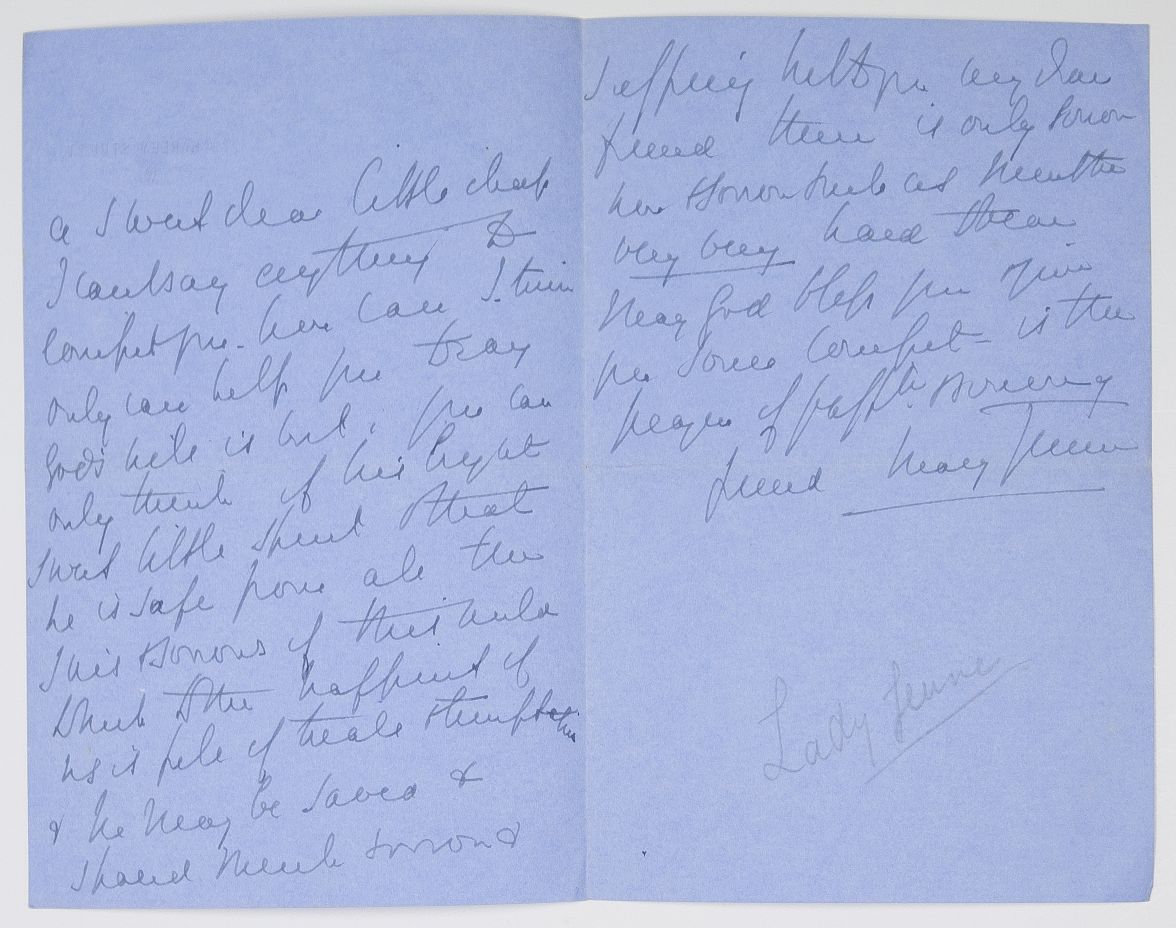 a sweet dear little chap
I can't say anything to
comfort you. how can I. time
only can help you to say
God's will is but, you can
only think of his bright
sweet little spirit & that
he is safe from all the
sins & sorrows of this world
which to the happiest of
us is full of trials & temptations
& he may be saved &
spared much sorrow &
suffering but for my dear
friend there is only sorrow
how & must be
very very hard to bear
May God bless you & give
you some comfort - is the
prayer of
friend Mary Jeune
Lady Jeune